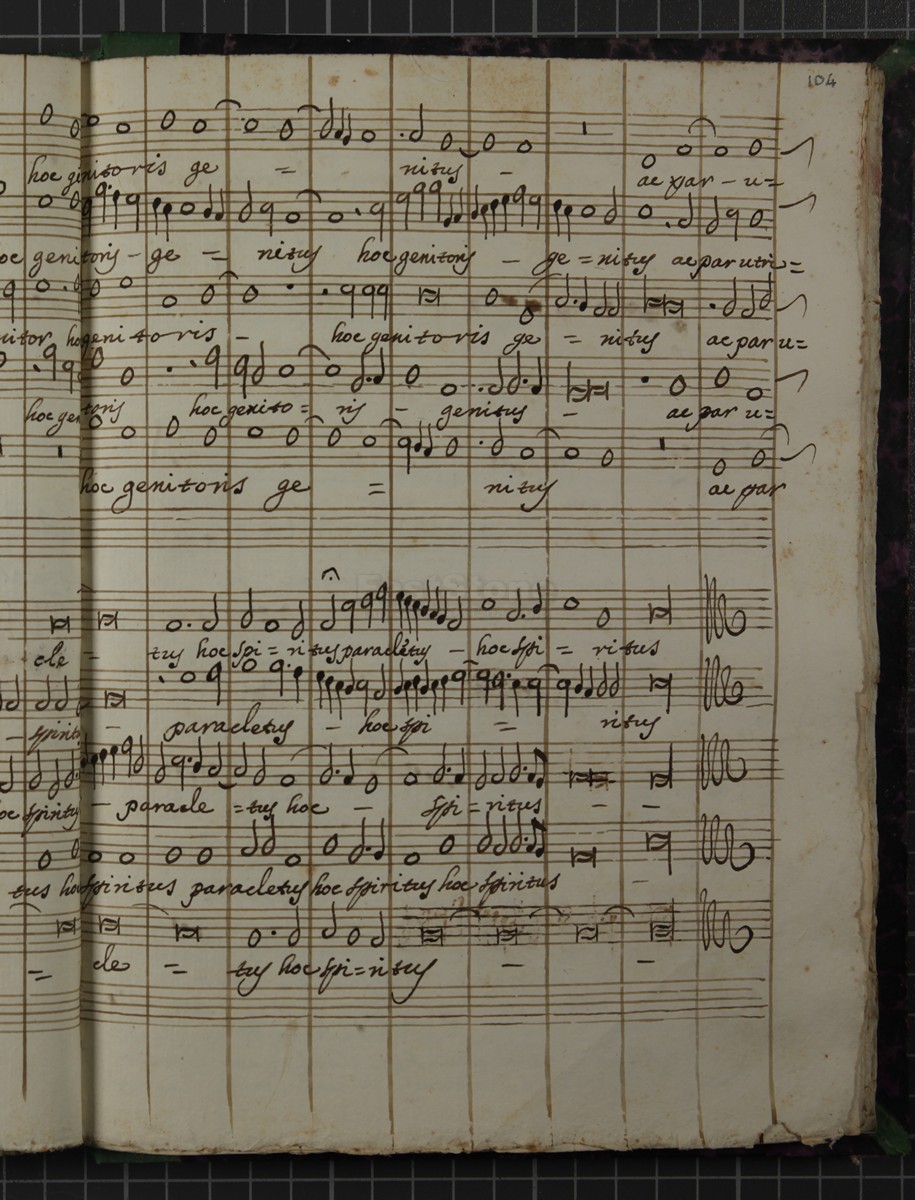 104
hoc genitoris ge = nitus - ac par - u=
oc genitoris - ge = nitus hoc genitoris - ge = nitus ac par utri=
nitor hogenitoris - hoc genitoris ge = nitus ac par u=
hoc gen toris hoc genito = ris - genitus - ac par u=
hoc genitoris ge = nitus ac par
cle - tus hoc spi = ritus paracletus - hoc spi = ritus
- spiritu - paracletus - hoc spi = ritus
oc spiritu - paracle = tus hoc - spi = ritus - -
tus ho spiritus paracletus hoc spiritus hoc spiritus -
= cle = tus hoc spi = ritus - -